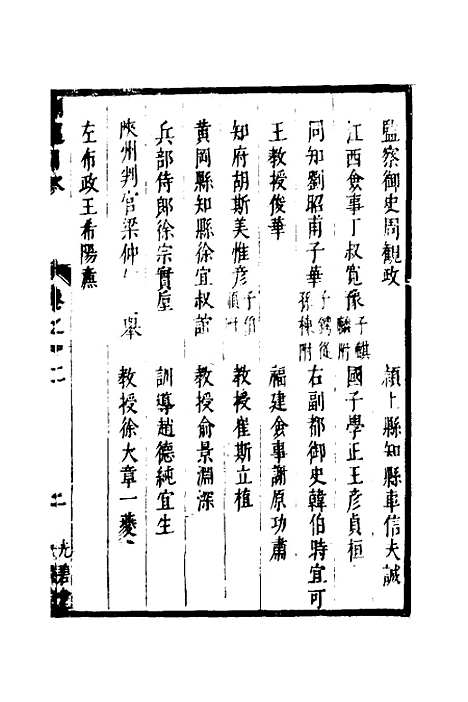 監察御史周觀政 潁上縣知縣車信夫誠
江西僉事丁叔寬儼子麒驎附 國子學正王彥貞桓
同知劉昭甫子華子鍔從孫棟附 右副都御史韓伯時宜可
王教授俊華 福建僉事謝原功肅
知府胡斯美惟彥子 附 教授崔斯立植
黃岡縣知縣徐宜叔誼 教授俞景淵深
兵部侍郎徐宗實垕 訓導趙德純宜生
陝州判官梁仲 舉 教授徐大章一夔
左布政王希陽熏
卷之十二 二